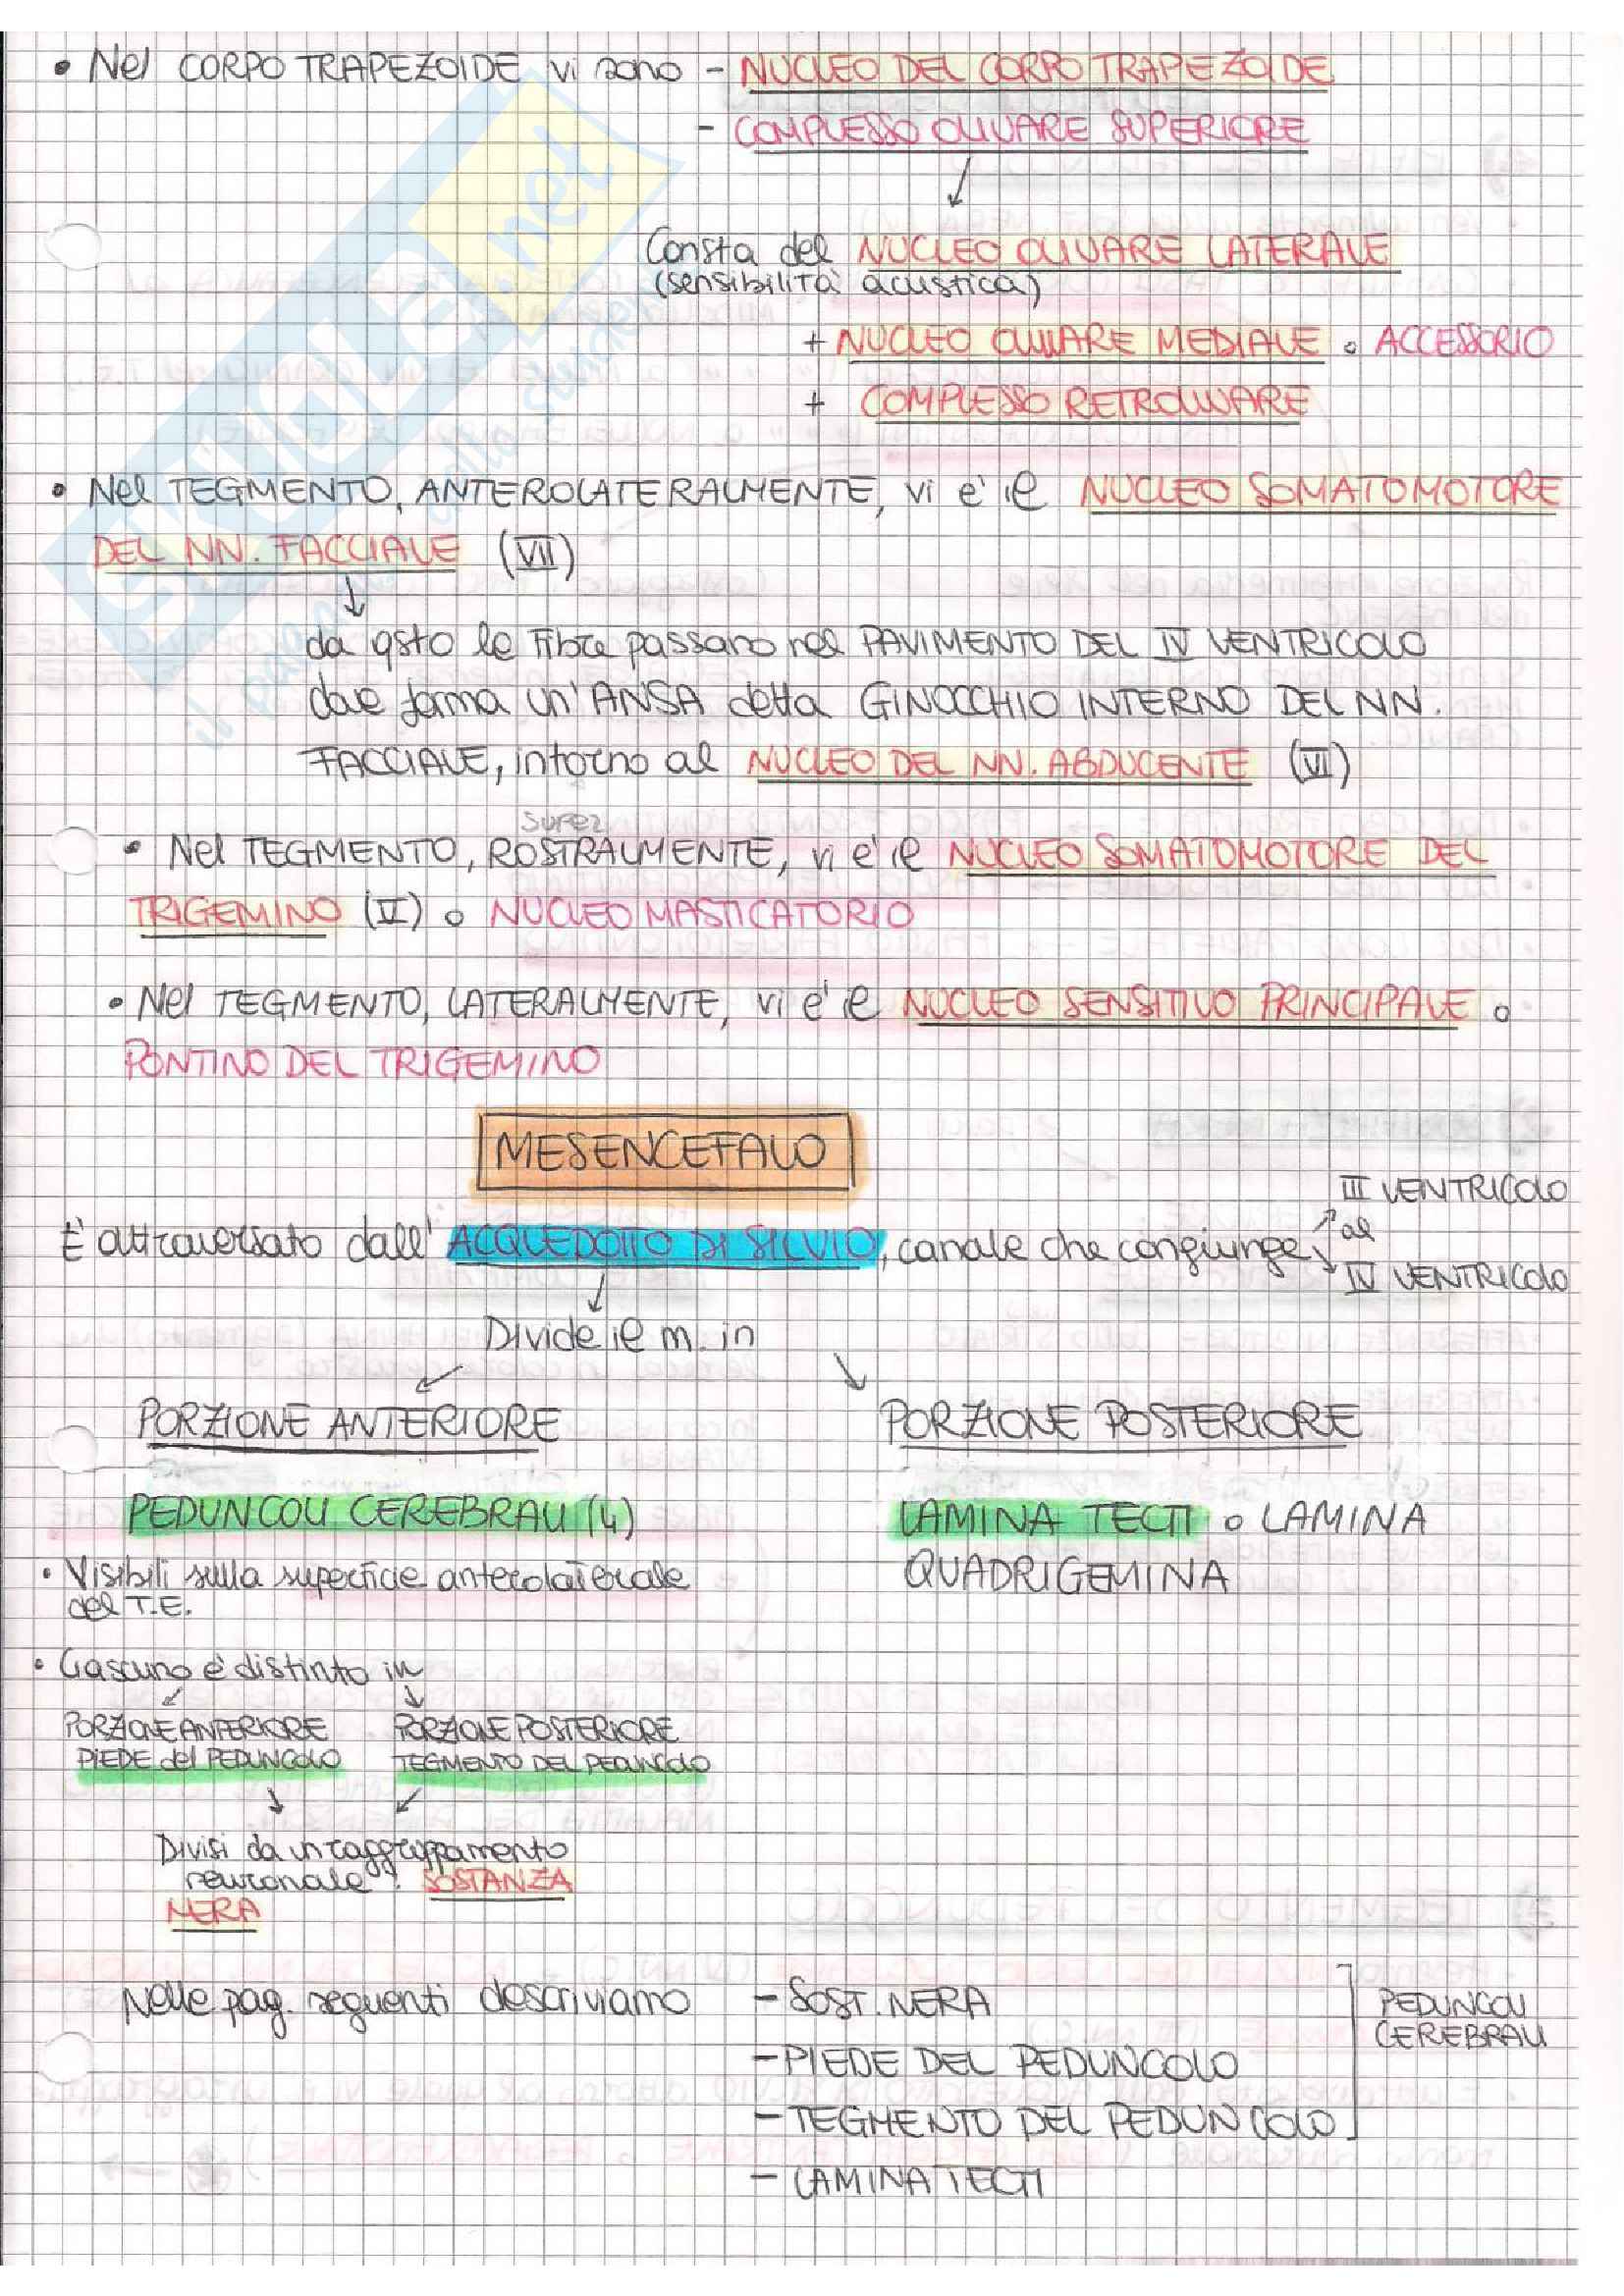 • Nel CORPO TRAPEZOIDE vi sono - NUCLEO DEL CORPO TRAPEZOIDE
- COMPLESSO OLIVARE SUPERIORE
↓
Consta del NUCLEO OLIVARE LATERALE
(sensibilità acustica)
+ NUCLEO OLIVARE MEDIALE o ACCESSORIO
+ COMPLESSO RETROLIVARE
• Nel TEGMENTO, ANTEROLATERALMENTE, vi è il NUCLEO SOMATOMOTORE
DEL NN. FACCIALE (VII)
↓
da qsto le fibre passano nel PAVIMENTO DEL IV VENTRICOLO
dove forma un'ANSA detta GINOCCHIO INTERNO DEL NN.
FACCIALE, intorno al NUCLEO DEL NN. ABDUCENTE (VI)
super
• Nel TEGMENTO, ROSTRALMENTE, vi è il NUCLEO SOMATOMOTORE DEL
TRIGEMINO (V) o NUCLEO MASTICATORIO
• Nel TEGMENTO, LATERALMENTE, vi è il NUCLEO SENSITIVO PRINCIPALE o
PONTINO DEL TRIGEMINO
MESENCEFALO
III VENTRICOLO
È attraversato dall' ACQUEDOTTO DI SILVIO, canale che congiunge al
IV VENTRICOLO
↓
Divide il m. in
PORZIONE ANTERIORE PORZIONE POSTERIORE
PEDUNCOLI CEREBRALI (4) LAMINA TECTI o LAMINA
QUADRIGEMINA
• Visibili sulla superficie anterolaterale
del T.E.
• Ciascuno è distinto in
PORZIONE ANTERIORE PORZIONE POSTERIORE
PIEDE del PEDUNCOLO TEGMENTO DEL PEDUNCOLO
Divisi da un raggruppamento
neuronale: SOSTANZA
NERA
Nelle pag. seguenti descriviamo - SOST. NERA
- PIEDE DEL PEDUNCOLO
- TEGMENTO DEL PEDUNCOLO
- LAMINA TECTI
PEDUNCOLI
CEREBRALI
SKUOLA.net